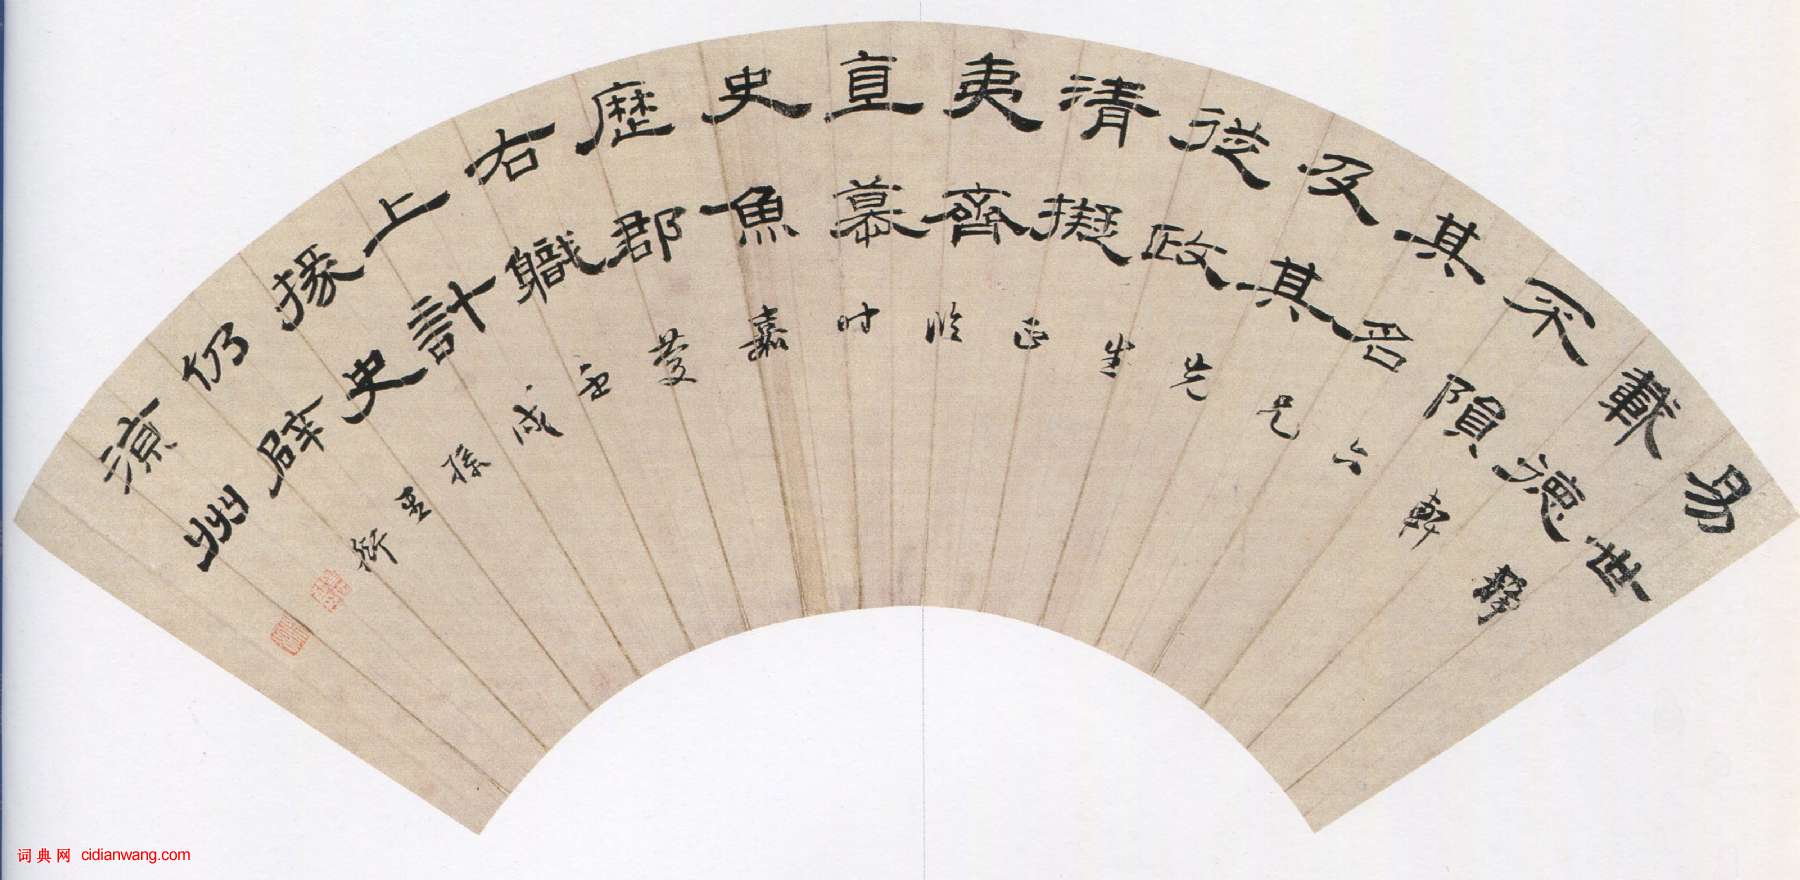 易世
載德
不隕
其名
及其
從政
清擬
夷齊
直慕
史魚
歷郡
右職
上計
掾史
仍辟
涼州
軒六兄先生正臨時嘉慶壬戌孫星衍
词典网 cidianwang.com